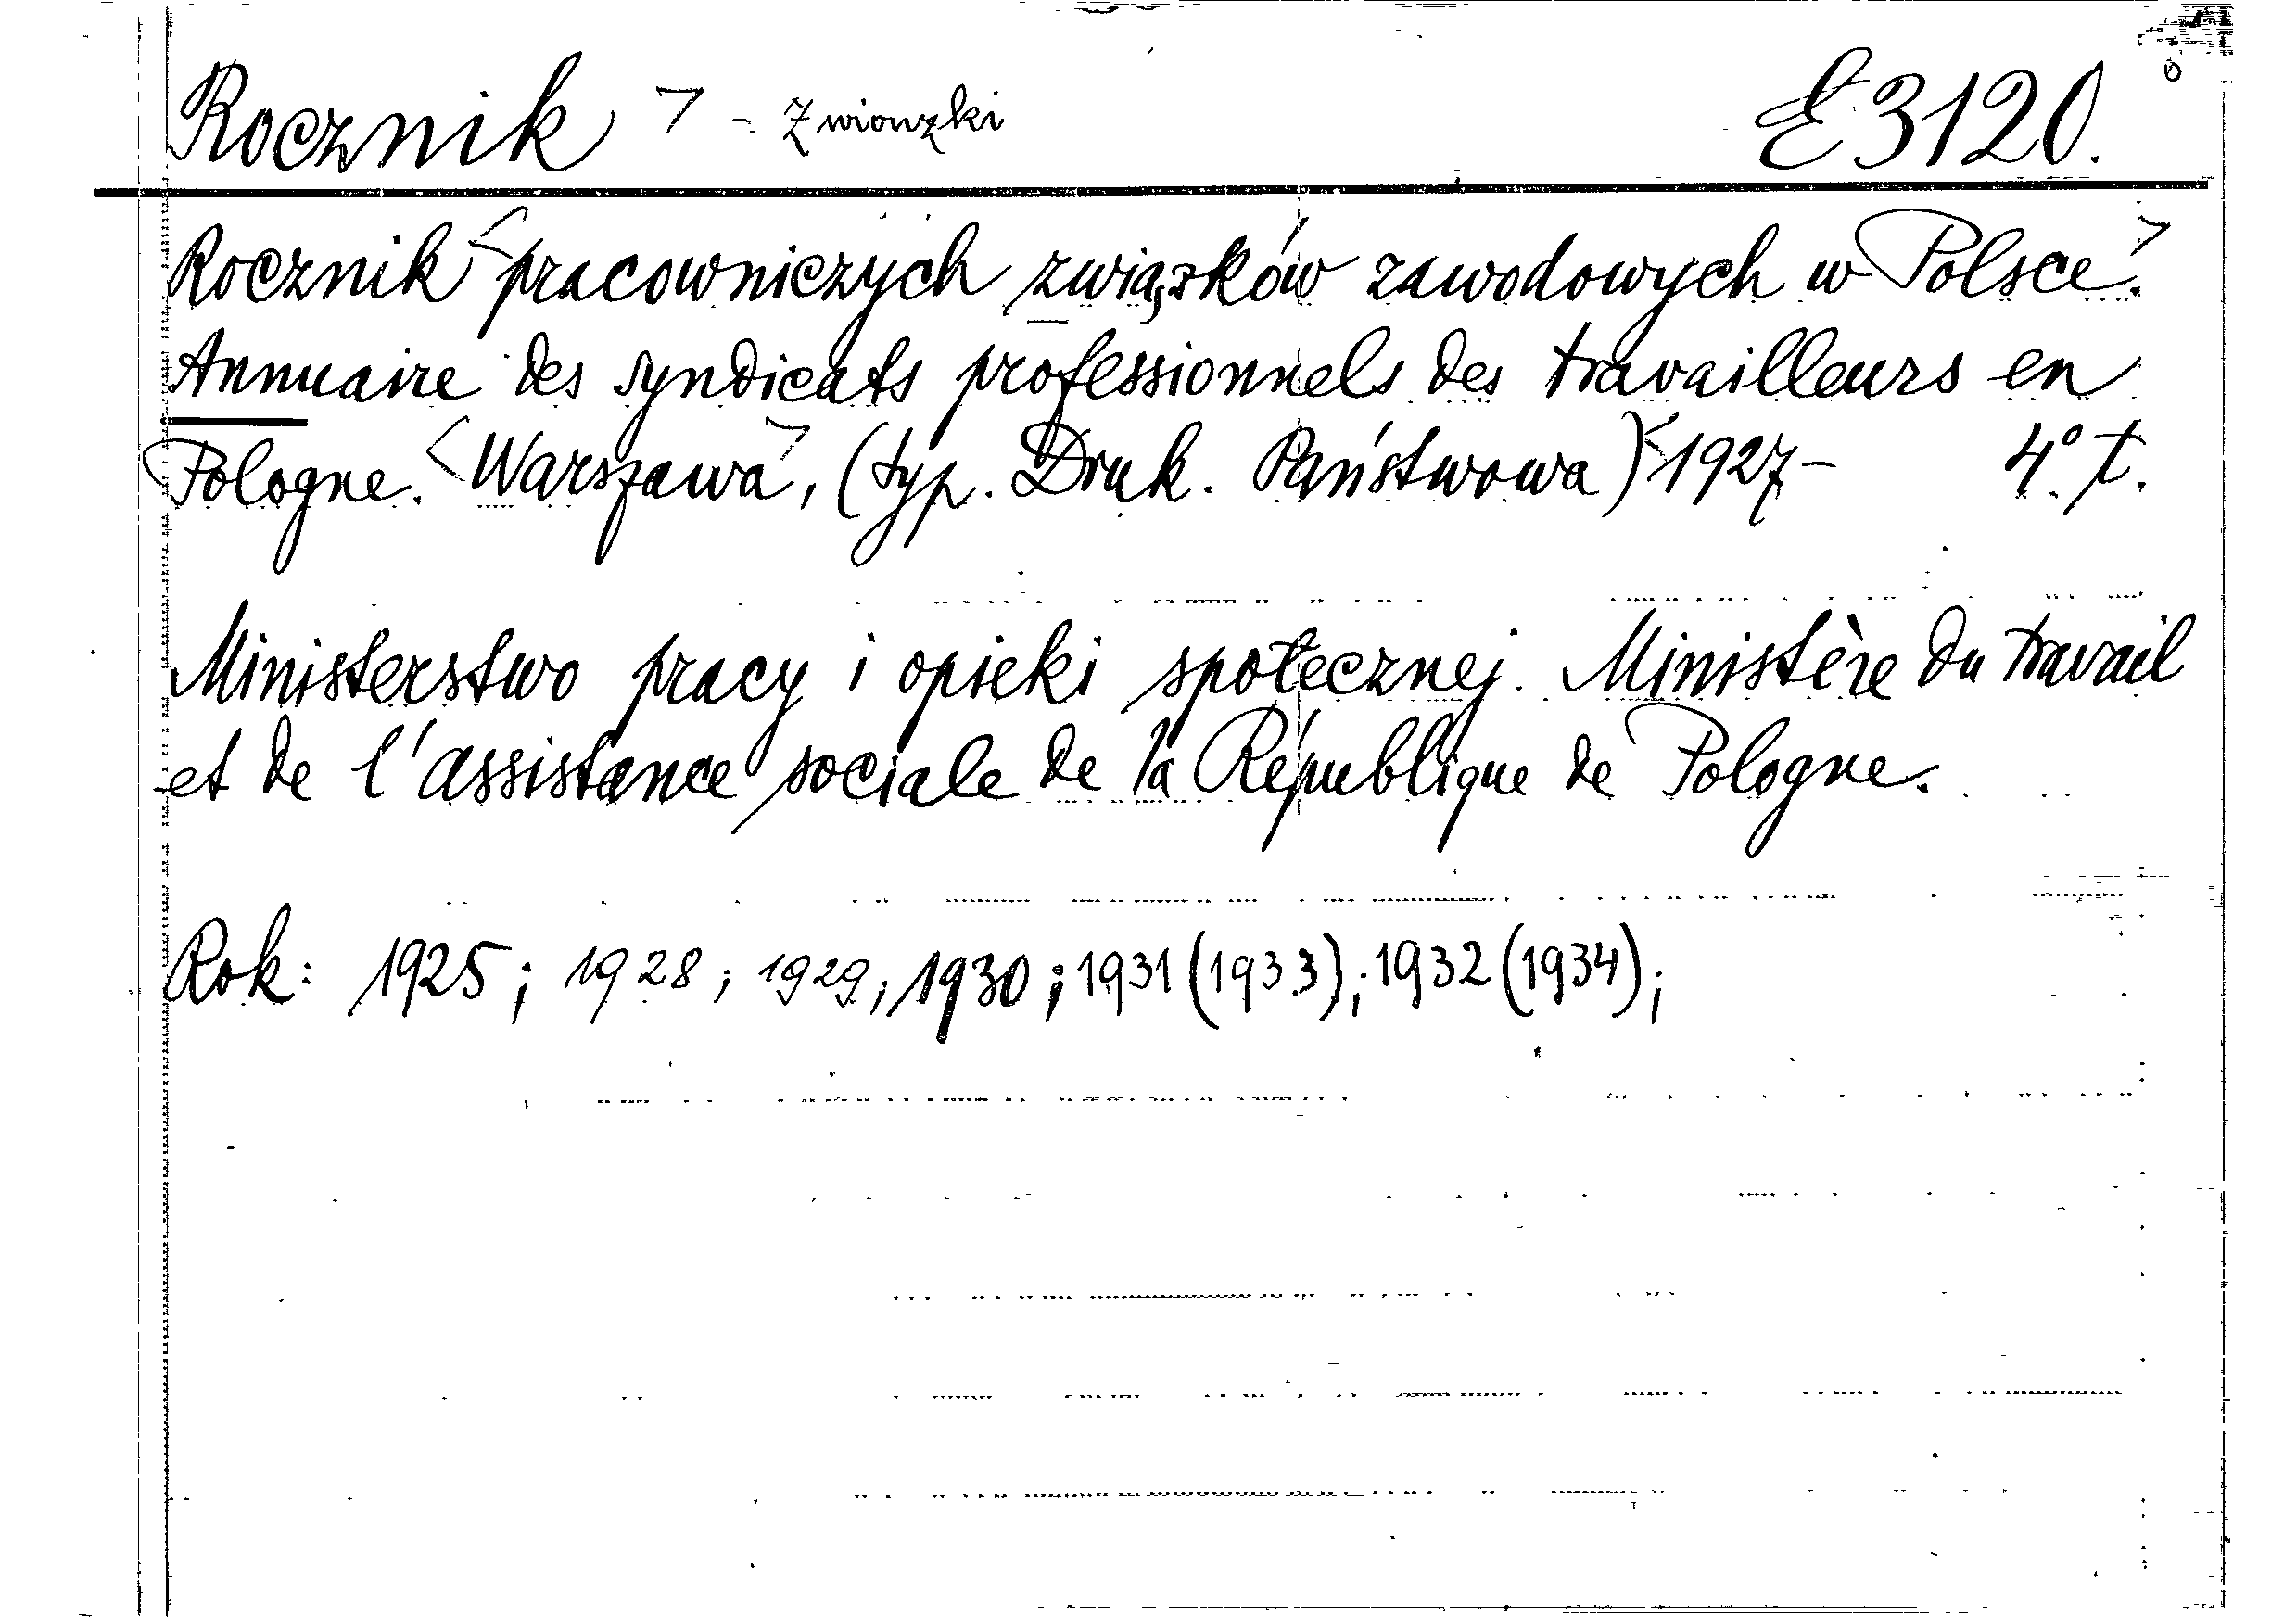 Rocznik > - Zwionzki E 3120.
Rocznik <pracowniczych związków zawodowych w Polsce.>
Annuaire des syndicats professionnels des travailleurs en
Pologne. <Warszawa>, (typ. Druk. Państwowa) <1927- 4° t.
Ministerstwo pracy i opieki społecznej. Ministère du travail
et de l'assistance sociale de la République de Pologne.
Rok: 1925; 1928; 1929; 1930; 1931 (1933); 1932 (1934);